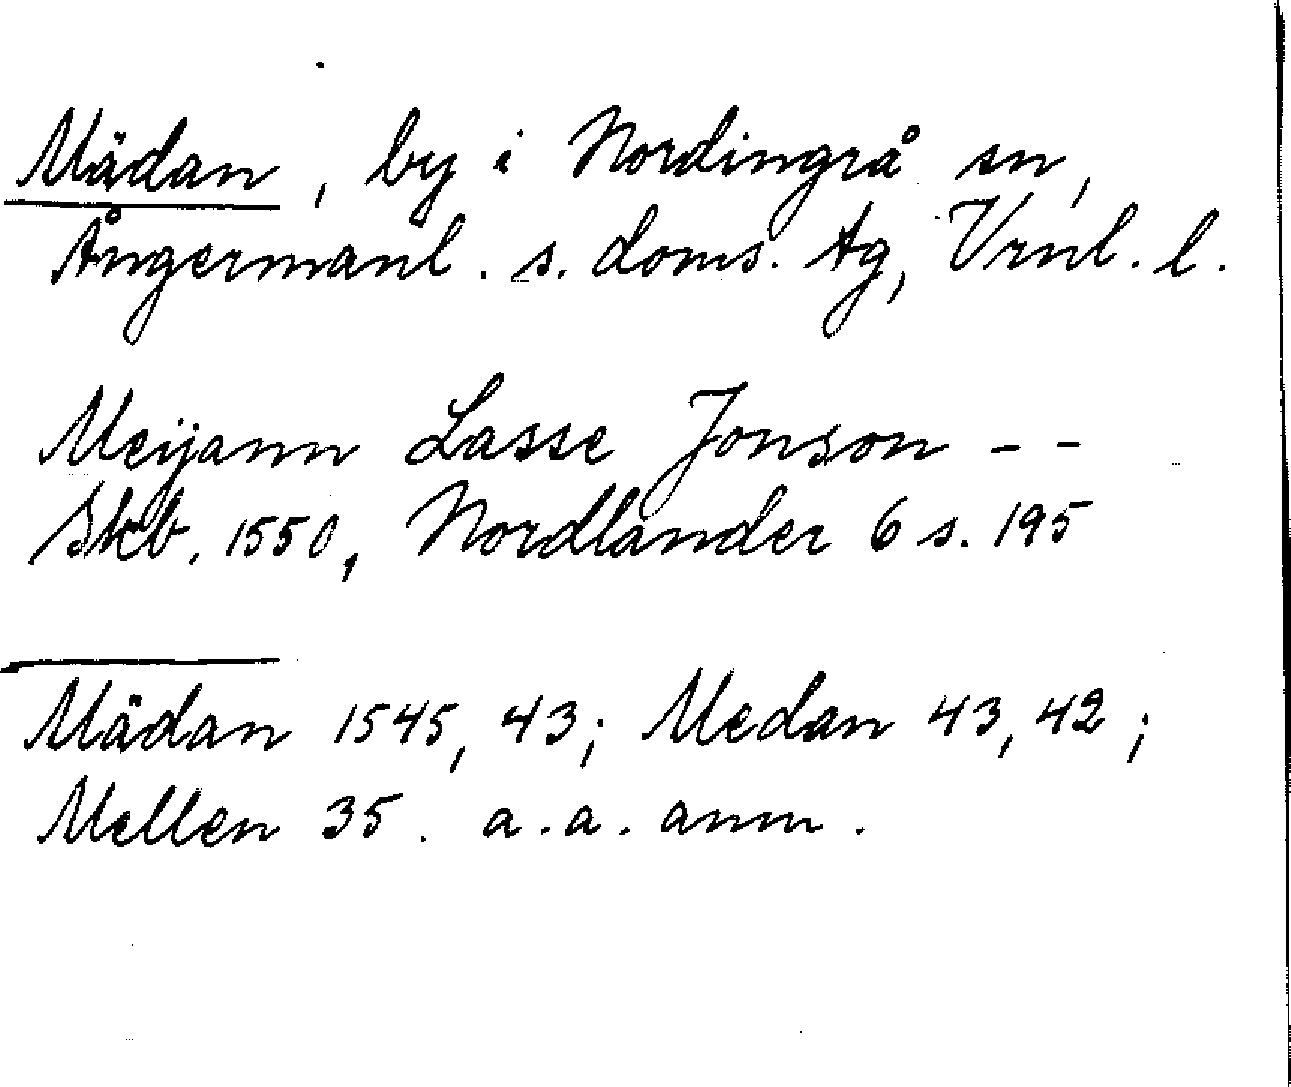 Mädan, by i Nordingrå sn,
Ångermanl. s. doms. tg, Vrnl. l.
Meijann Lasse Jonson - -
Skb. 1550, Nordlander 6 s. 195
Mädan 1545, 43; Medan 43, 42;
Mellen 35. a. a. anm.